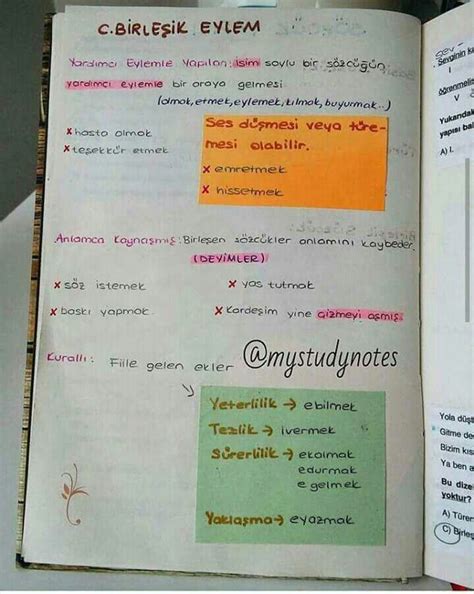 C.BİRLEŞİK EYLEM
Yardımcı Eylemle Yapılan: isim soylu bir sözcüğün
yardımcı eylemle bir araya gelmesi
(olmak, etmek, eylemek, kılmak, buyurmak..)
x hasta olmak
x teşekkür etmek
Ses düşmesi veya türe-
mesi olabilir.
x emretmek
x hissetmek
Anlamca Kaynaşmış: Birleşen sözcükler anlamını kaybeder.
(DEYİMLER)
x söz istemek
x yas tutmak
x baskı yapmak
x Kardeşim yine çizmeyi aşmış.
Kurallı: Fiile gelen ekler
@mystudynotes
Yeterlilik → ebilmek
Tezlik → ivermek
Sürerlilik → ekalmak
edurmak
egelmek
Yaklaşma → eyazmak
I
V
Yukarıdak
yapısı ba
A) I.
Yola düş
Gitme de
Bizim kıs
Ya ben a
Bu dize
yoktur?
A) Türer
C) Birleş